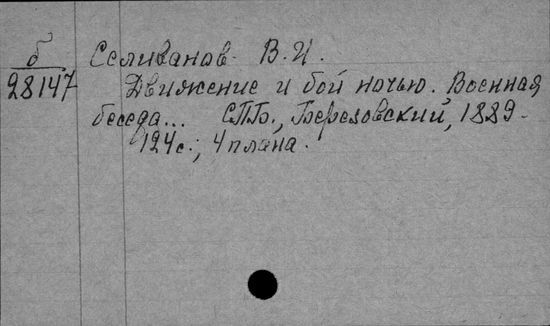 б
28147
Селиванов В. И.
Движение и бой ночью. Военная
беседа... СПб., Березовский, 1889.
124 с.; 4 плана.